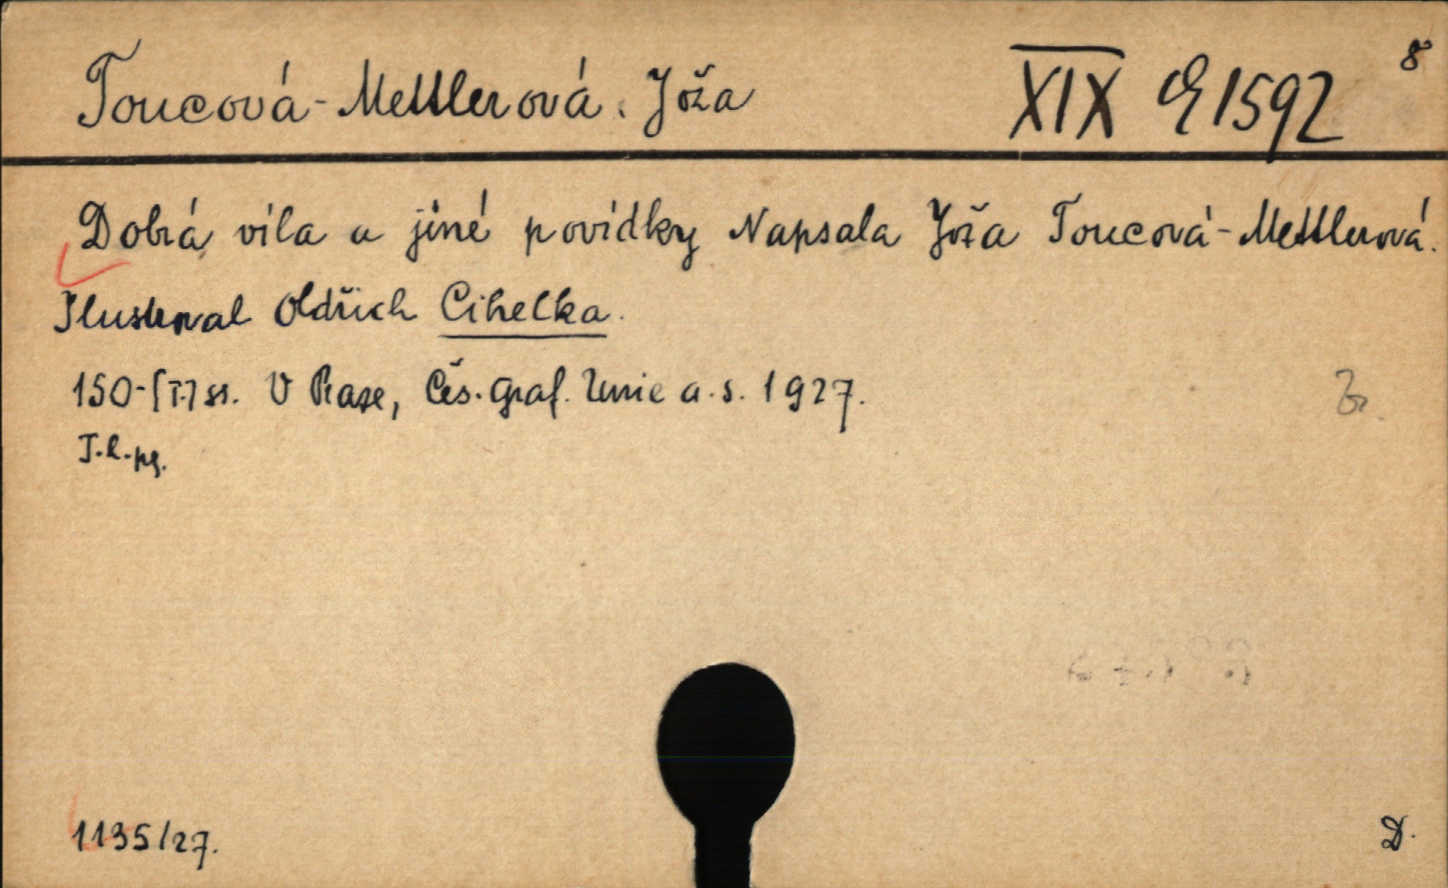 Toucová-Mettlerová, Joža XIX E 1592 8
Dobrá víla a jiné povídky Napsala Joža Toucová-Mettlerová.
Ilustroval Oldřich Cihelka.
150-[I.] ss. V Praze, Čes. graf. Unie a. s. 1927.
T. h.-pg.
1135/27.
D.